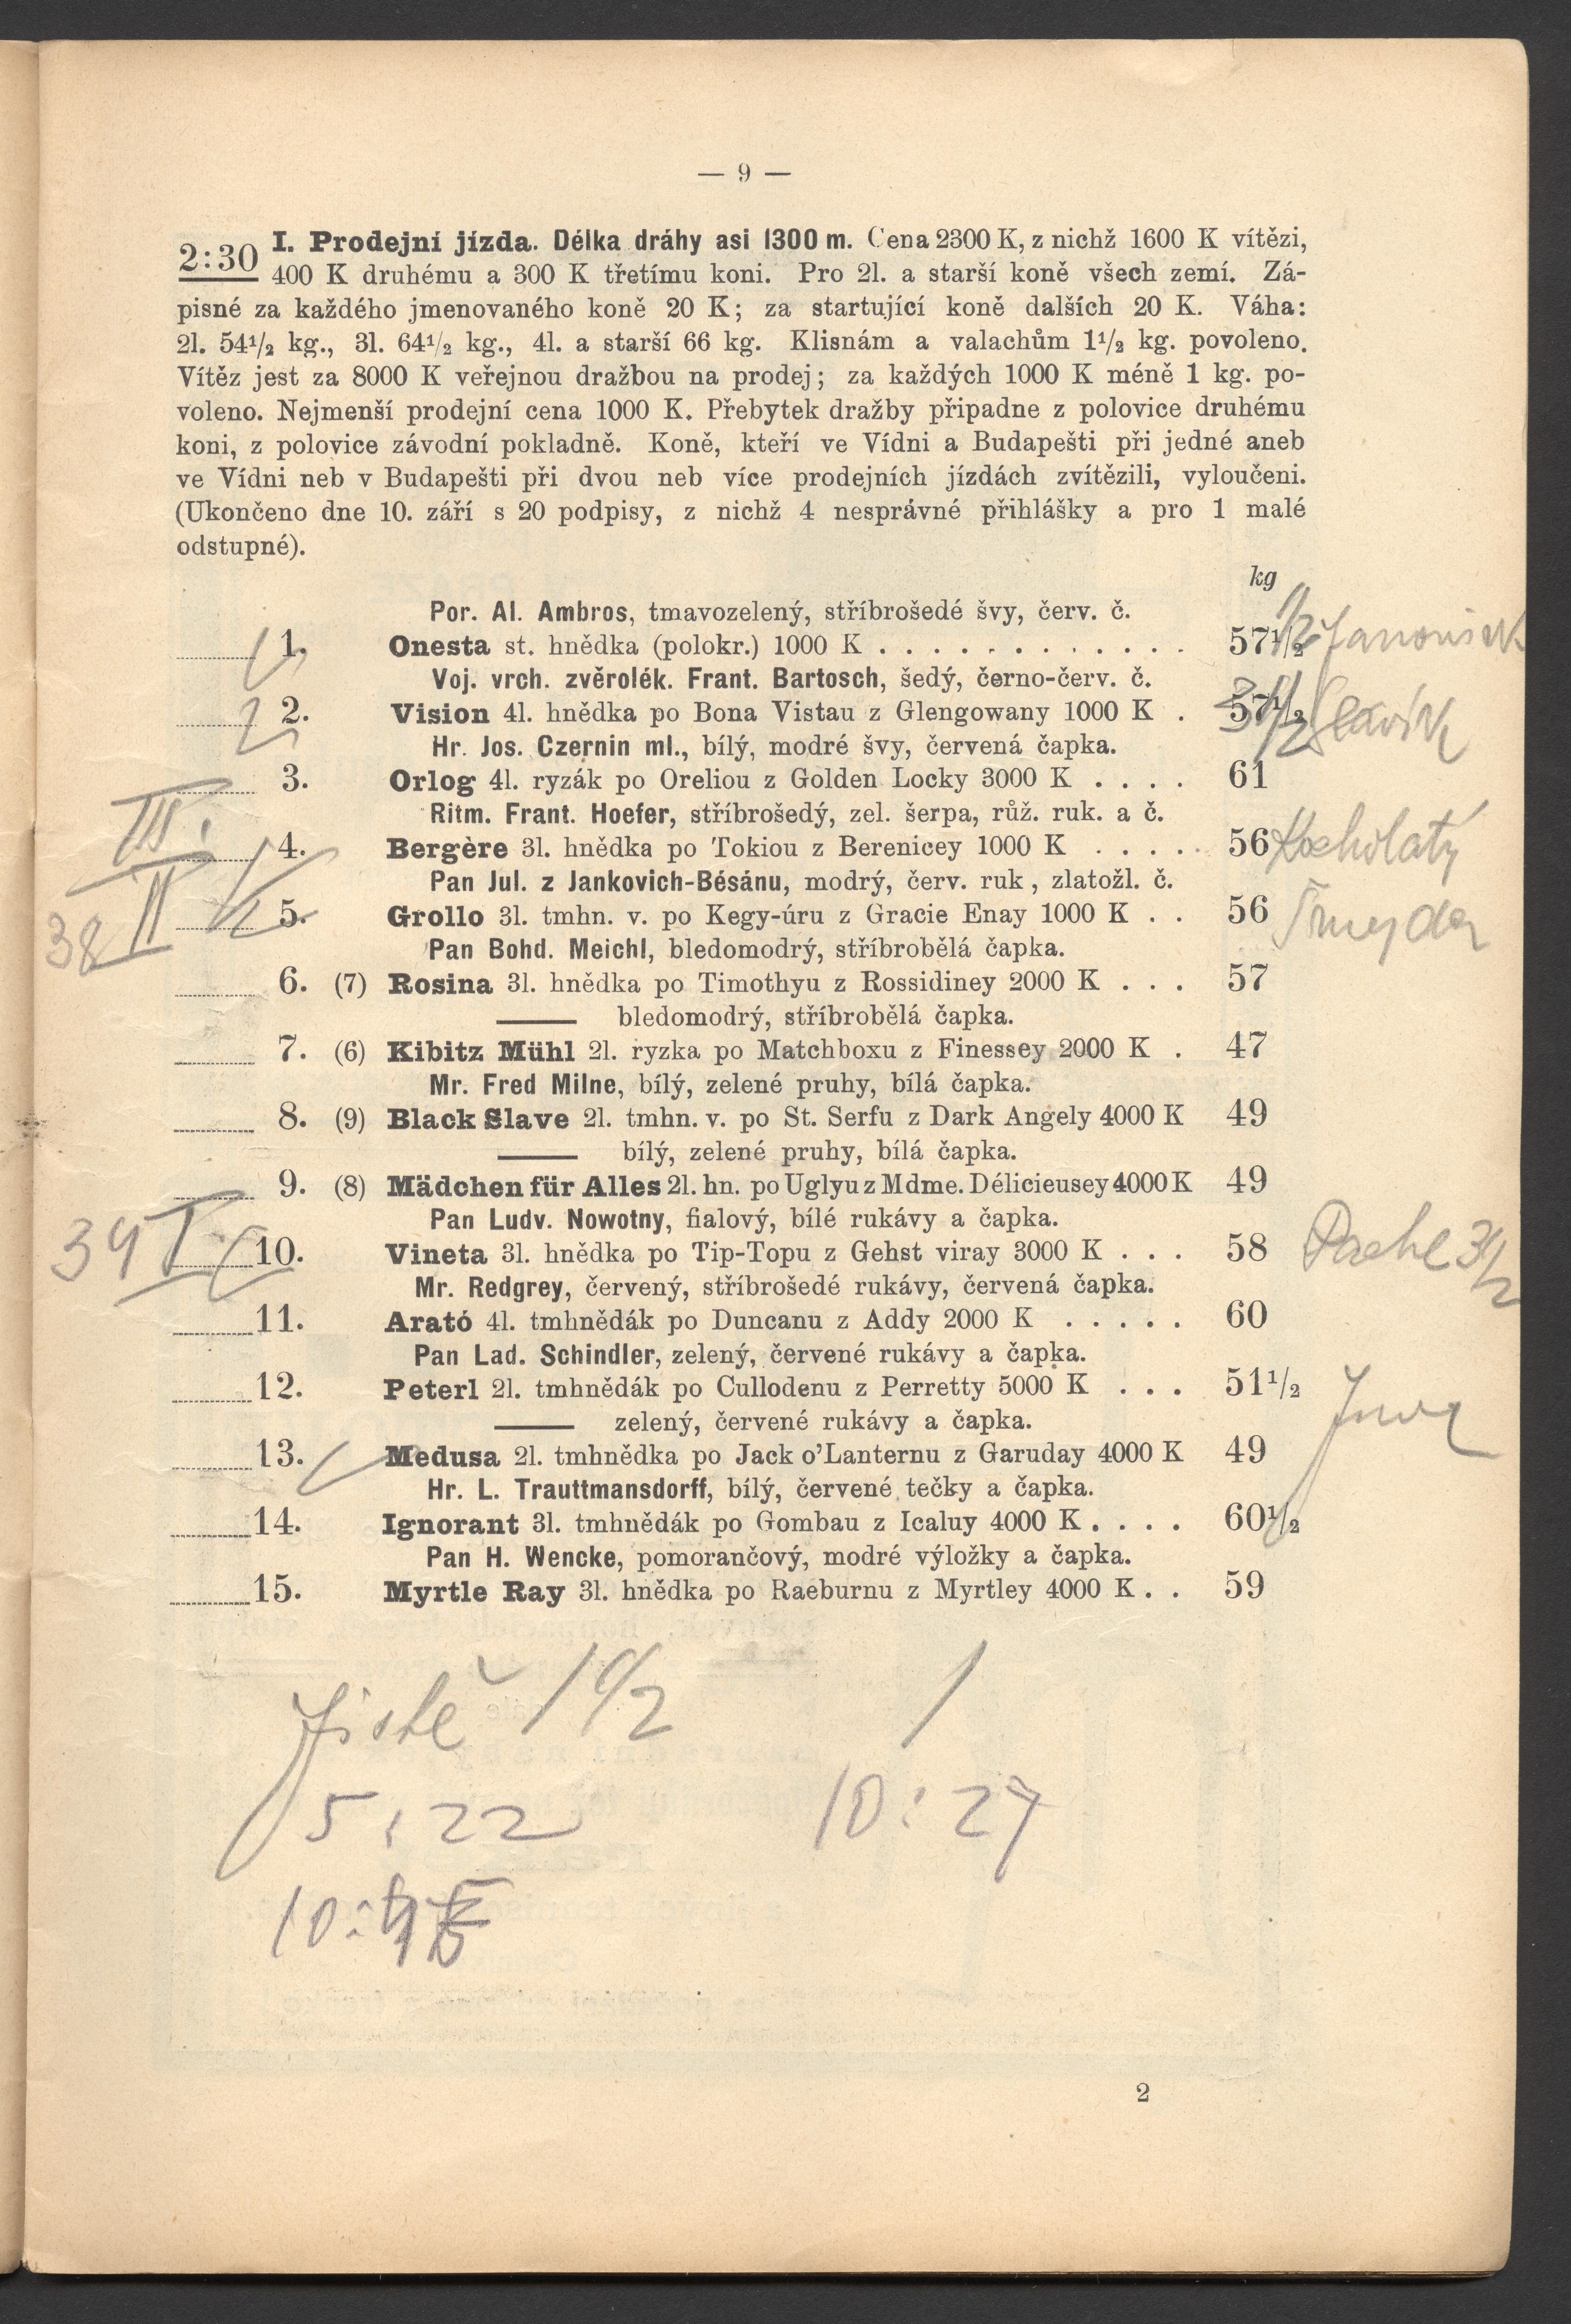 — 9 —
2:30 I. Prodejní jízda. Délka dráhy asi 1300 m. Cena 2300 K, z nichž 1600 K vítězi,
400 K druhému a 300 K třetímu koni. Pro 2l. a starší koně všech zemí. Zá-
pisné za každého jmenovaného koně 20 K; za startující koně dalších 20 K. Váha:
2l. 54½ kg., 3l. 64½ kg., 4l. a starší 66 kg. Klisnám a valachům 1½ kg. povoleno.
Vítěz jest za 8000 K veřejnou dražbou na prodej; za každých 1000 K méně 1 kg. po-
voleno. Nejmenší prodejní cena 1000 K. Přebytek dražby připadne z polovice druhému
koni, z polovice závodní pokladně. Koně, kteří ve Vídni a Budapešti při jedné aneb
ve Vídni neb v Budapešti při dvou neb více prodejních jízdách zvítězili, vyloučeni.
(Ukončeno dne 10. září s 20 podpisy, z nichž 4 nesprávné přihlášky a pro 1 malé
odstupné).
kg
Por. Al. Ambros, tmavozelený, stříbrošedé švy, červ. č.
1. Onesta st. hnědka (polokr.) 1000 K . . . . . . . . . . . . 57½ Janousek
Voj. vrch. zvěrolék. Frant. Bartosch, šedý, černo-červ. č.
2. Vision 4l. hnědka po Bona Vistau z Glengowany 1000 K . 57½ Slavík
Hr. Jos. Czernin ml., bílý, modré švy, červená čapka.
3. Orlog 4l. ryzák po Oreliou z Golden Locky 3000 K . . . . 61
Ritm. Frant. Hoefer, stříbrošedý, zel. šerpa, růž. ruk. a č.
III. 4. Bergère 3l. hnědka po Tokiou z Berenicey 1000 K . . . . . 56 Kocholatý
Pan Jul. z Jankovich-Bésánu, modrý, červ. ruk, zlatožl. č.
38 II 5. Grollo 3l. tmhn. v. po Kegy-úru z Gracie Enay 1000 K . . 56
Pan Bohd. Meichl, bledomodrý, stříbrobělá čapka.
6. (7) Rosina 3l. hnědka po Timothyu z Rossidiney 2000 K . . . 57
—— bledomodrý, stříbrobělá čapka.
7. (6) Kibitz Mühl 2l. ryzka po Matchboxu z Finessey 2000 K . 47
Mr. Fred Milne, bílý, zelené pruhy, bílá čapka.
8. (9) Black Slave 2l. tmhn. v. po St. Serfu z Dark Angely 4000 K 49
—— bílý, zelené pruhy, bílá čapka.
9. (8) Mädchen für Alles 2l. hn. po Uglyu z Mdme. Délicieusey 4000 K 49
Pan Ludv. Nowotny, fialový, bílé rukávy a čapka.
39 I. 10. Vineta 3l. hnědka po Tip-Topu z Gehst viray 3000 K . . . 58
Mr. Redgrey, červený, stříbrošedé rukávy, červená čapka.
11. Arató 4l. tmhnědák po Duncanu z Addy 2000 K . . . . . 60
Pan Lad. Schindler, zelený, červené rukávy a čapka.
12. Peterl 2l. tmhnědák po Cullodenu z Perretty 5000 K . . . 51½
—— zelený, červené rukávy a čapka.
13. Medusa 2l. tmhnědka po Jack o'Lanternu z Garuday 4000 K 49
Hr. L. Trauttmansdorff, bílý, červené tečky a čapka.
14. Ignorant 3l. tmhnědák po Gombau z Icaluy 4000 K . . . . 60½
Pan H. Wencke, pomorančový, modré výložky a čapka.
15. Myrtle Ray 3l. hnědka po Raeburnu z Myrtley 4000 K . . 59
Jistě
5:22 10:27
2